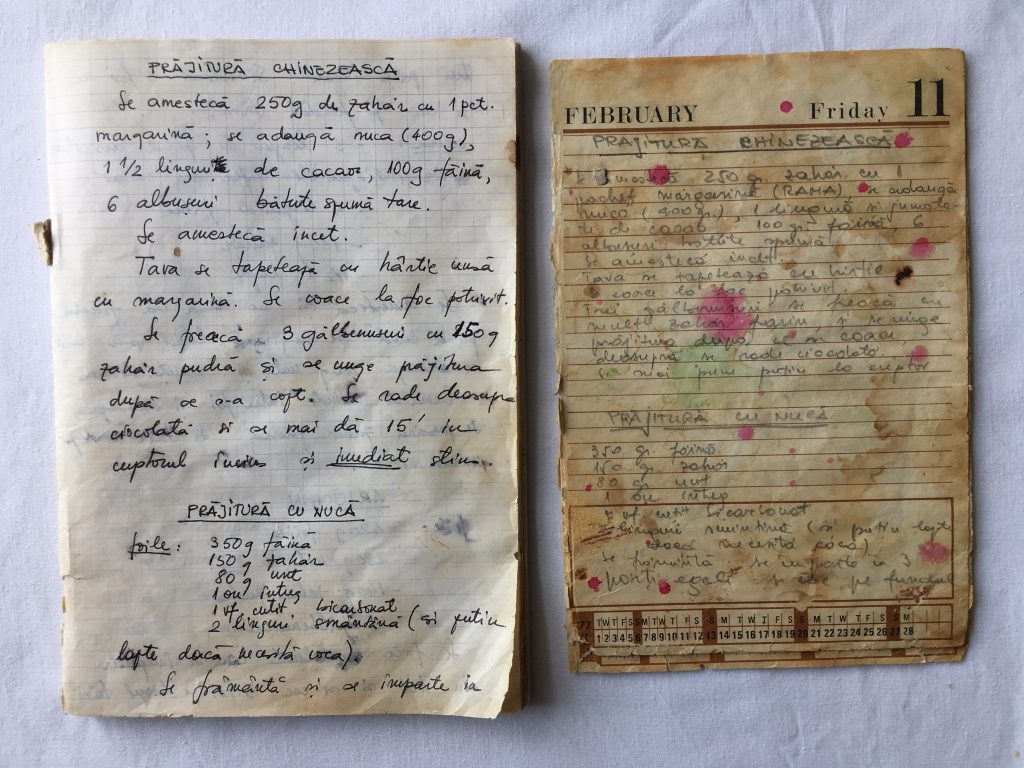 PRĂJITURĂ CHINEZEASCĂ
Se amestecă 250g de zahăr cu 1 pct.
margarină; se adaugă nuca (400g),
1 1/2 linguri de cacao, 100g făină,
6 albușuri bătute spumă tare.
Se amestecă încet.
Tava se tapetează cu hârtie unsă
cu margarină. Se coace la foc potrivit.
Se freacă 3 gălbenușuri cu 150g
zahăr pudră și se unge prăjitura
după ce s-a copt. Se rade deasupra
ciocolată si se mai dă 15' în
cuptorul încins și imediat stins.
PRĂJITURĂ CU NUCĂ
foile: 350g făină
150g zahăr
80g unt
1 ou întreg
1 vf cuțit bicarbonat
2 linguri smântână (și puțin
lapte dacă necesită coca).
Se frământă și se împarte în
FEBRUARY Friday 11
PRĂJITURĂ CHINEZEASCĂ
Se amestecă 250 g. zahăr cu 1
pachet margarină (RAMA) se adaugă
nuca (400 gr.), 1 lingură si jumăta-
te de cacao, 100 gr. făină, 6
albușuri bătute spumă
Se amestecă încet
Tava se tapetează cu hîrtie
coace la foc potrivit.
Trei gălbenușuri se freacă cu
mult zahăr și se unge
prăjitura după ce s-a copt
deasupra se rade ciocolată
Se mai pune puțin la cuptor
PRĂJITURĂ CU NUCĂ
350 gr. făină
150 g. zahăr
80 g unt
1 ou întreg
1 vf. cuțit bicarbonat
2 linguri smîntînă (si puțin lapte
dacă necesită coca)
Se frămîntă, se împarte în 3
porți egali se coc pe fundul
77 T W T F S S M T W T F S S M T W T F S S M T W T F S S M
1 2 3 4 5 6 7 8 9 10 11 12 13 14 15 16 17 18 19 20 21 22 23 24 25 26 27 28